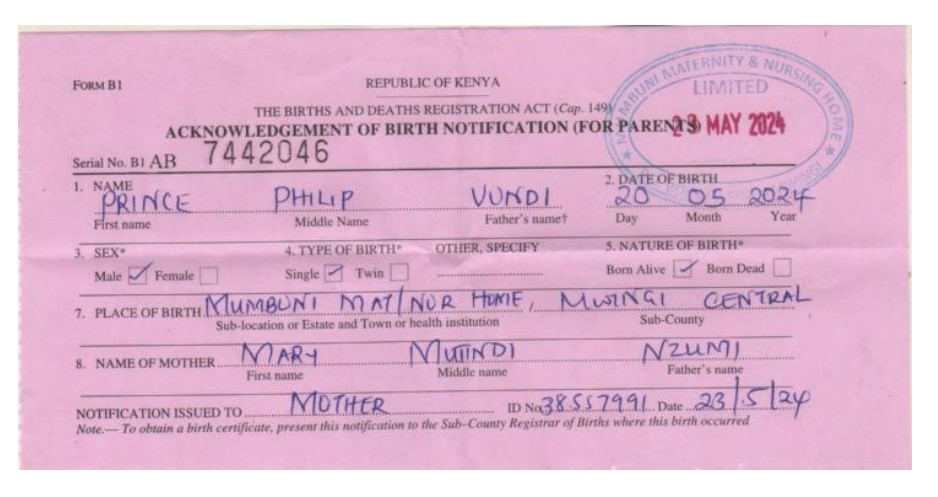 FORM B1
REPUBLIC OF KENYA
THE BIRTHS AND DEATHS REGISTRATION ACT (Cap. 149)
ACKNOWLEDGEMENT OF BIRTH NOTIFICATION (FOR PARENTS)
MUMBUNI MATERNITY & NURSING HOME
LIMITED
23 MAY 2024
Serial No. B1 AB 7442046
1. NAME 2. DATE OF BIRTH
PRINCE PHILIP VUNDI 20 05 2024
First name Middle Name Father's name† Day Month Year
3. SEX* 4. TYPE OF BIRTH* OTHER, SPECIFY 5. NATURE OF BIRTH*
Male ✓ Female Single ✓ Twin Born Alive ✓ Born Dead
7. PLACE OF BIRTH MUMBUNI MAT/NUR HOME, MWINGI CENTRAL
Sub-location or Estate and Town or health institution Sub-County
8. NAME OF MOTHER MARY MUTINDI NZUMI
First name Middle name Father's name
NOTIFICATION ISSUED TO MOTHER ID No 38557991 Date 23/5/24
Note.— To obtain a birth certificate, present this notification to the Sub–County Registrar of Births where this birth occurred